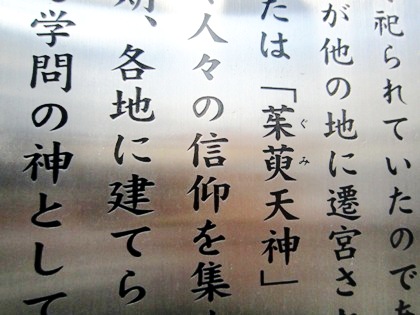 祀られていたのであ
が他の地に遷宮さ
たは「茱萸天神」
ぐみ
人々の信仰を集
期、各地に建てら
学問の神として